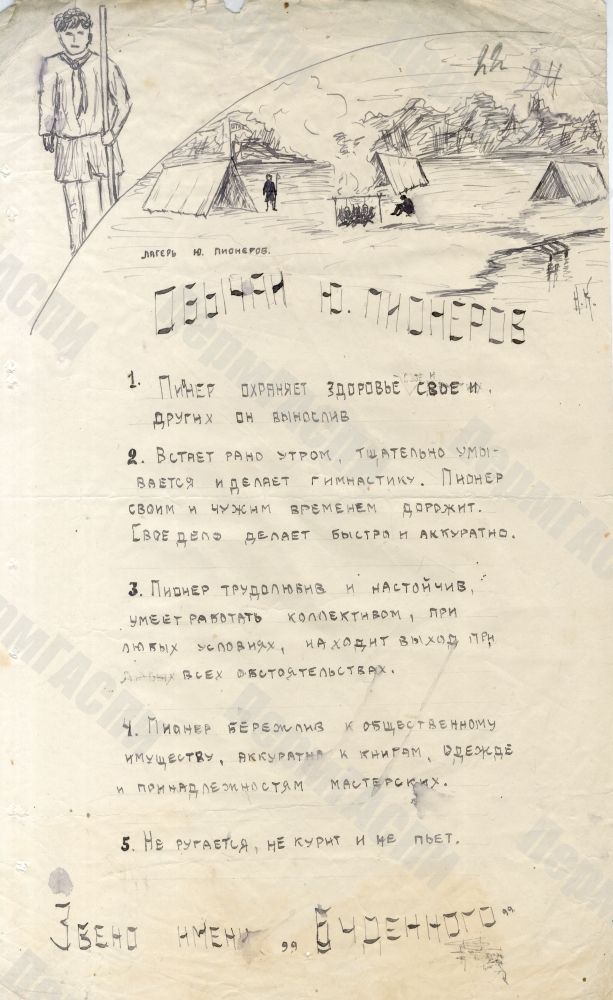 22 21
лагерь ю. пионеров.
Н.К.
Обычаи ю. пионеров
1. Пинер охраняет здоровье свое и
других он вынослив
2. Встает рано утром, тщательно умы-
вается и делает гимнастику. Пионер
своим и чужим временем дорожит.
Свое дело делает быстро и аккуратно.
3. Пионер трудолюбив и настойчив,
умеет работать коллективом, при
любых условиях, находит выход при
любых всех обстоятельствах.
4. Пионер бережлив к общественному
имуществу, аккуратна к книгам, одежде
и принадлежностям мастерских.
5. Не ругается, не курит и не пьет.
Звено имени „Буденного"
ПермГАСПИ